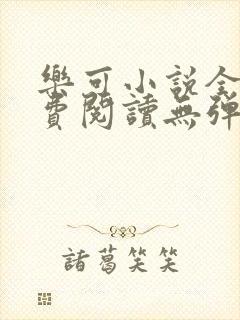 樂可小說全
費閱讀無彈
諸葛笑笑